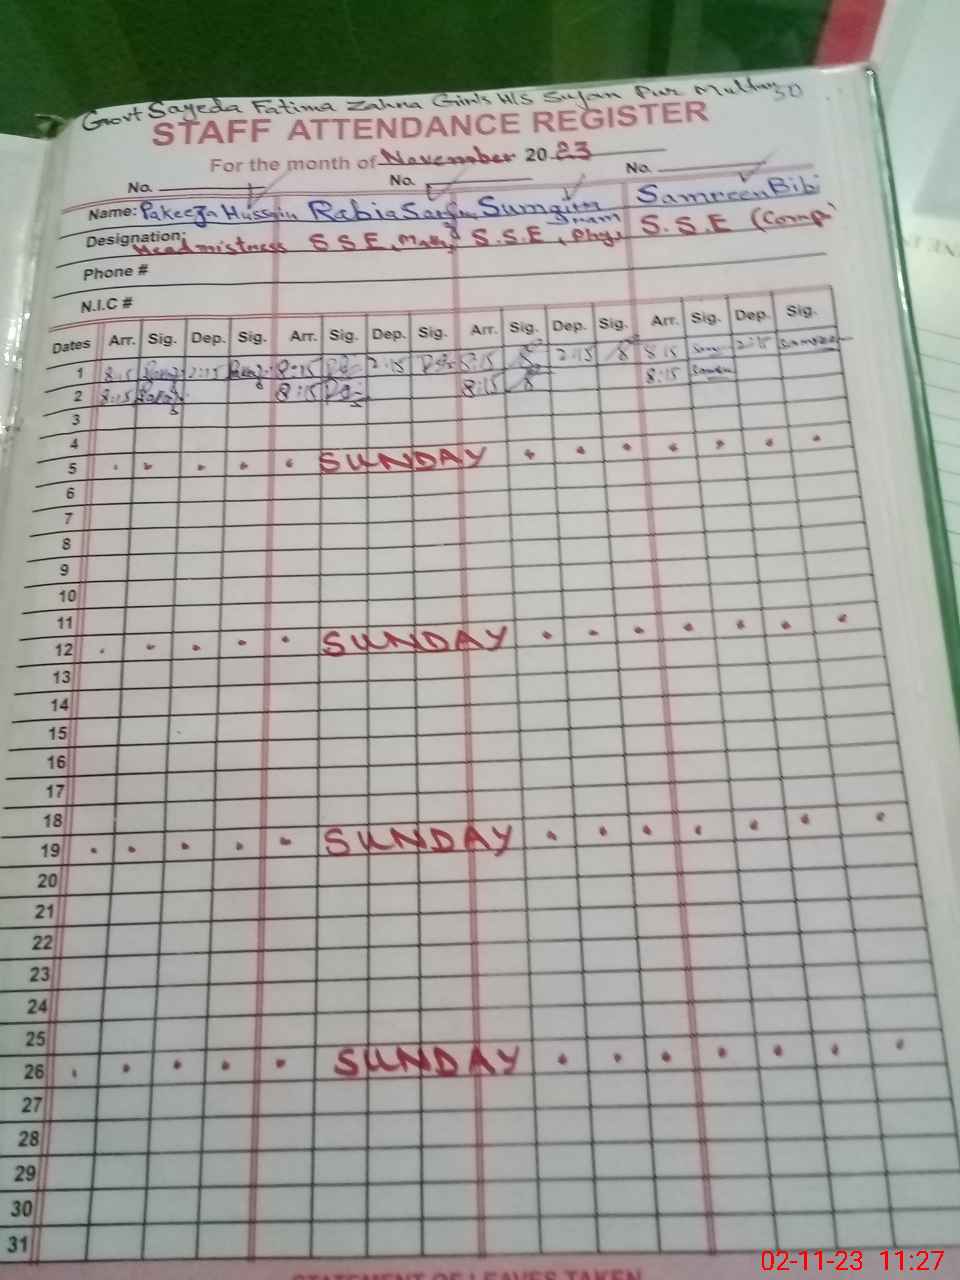 Govt Sayeda Fatima Zahra Girls H/S Sujan Pur Multan
STAFF ATTENDANCE REGISTER
For the month of November 2023
No. No. No.
Name: Pakeeza Hussain Rabia Sumaira Samreen Bibi
Designation: Headmistress S S E, Math S.S.E, Phys S.S.E (Comp)
Phone #
N.I.C #
Dates Arr. Sig. Dep. Sig. Arr. Sig. Dep. Sig. Arr. Sig. Dep. Sig. Arr. Sig. Dep. Sig.
1 8:15 2:15 8:15 2:15 8:15 2:15 8:15 2:15
2 8:15 8:15 8:15 8:15
3
4
5 SUNDAY
6
7
8
9
10
11
12 SUNDAY
13
14
15
16
17
18
19 SUNDAY
20
21
22
23
24
25
26 SUNDAY
27
28
29
30
31
STATEMENT OF LEAVES TAKEN
02-11-23 11:27